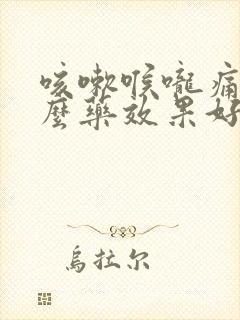 咳嗽喉嚨痛
麼藥效果好
烏拉尔